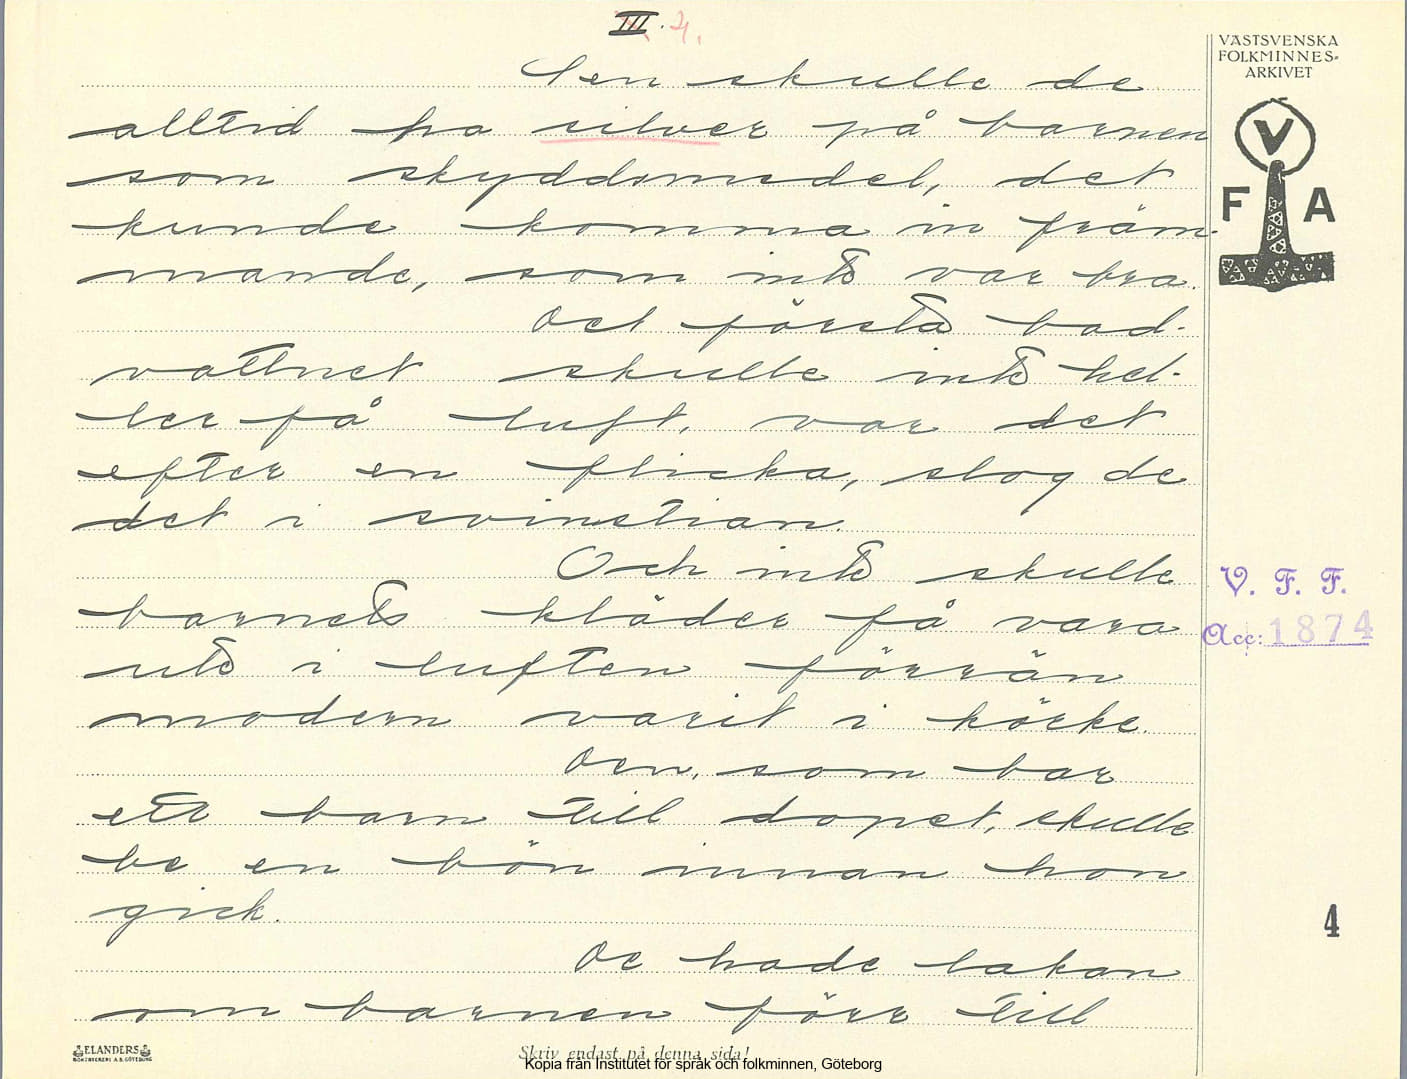 III. 4.
VÄSTSVENSKA
FOLKMINNES-
ARKIVET
V
F A
Sen skulle de
alltid ha silver på barnen
som skyddsmedel, det
kunde komma in främ-
mande, som inte var bra.
Det första bad-
vattnet skulle inte hel-
ler få luft, var det
efter en flicka, slog de
det i svinstian.
Och inte skulle
barnets kläder få vara
ute i luften förrän
modern varit i körke.
Den, som bar
ett barn till dopet, skulle
be en bön innan hon
gick.
De hade lakan
om barnen förr till
V. F. F.
Acc: 1874
4
ELANDERS
BOKTRYCKERI A.B. GÖTEBORG
Skriv endast på denna sida!
Kopia från Institutet för språk och folkminnen, Göteborg